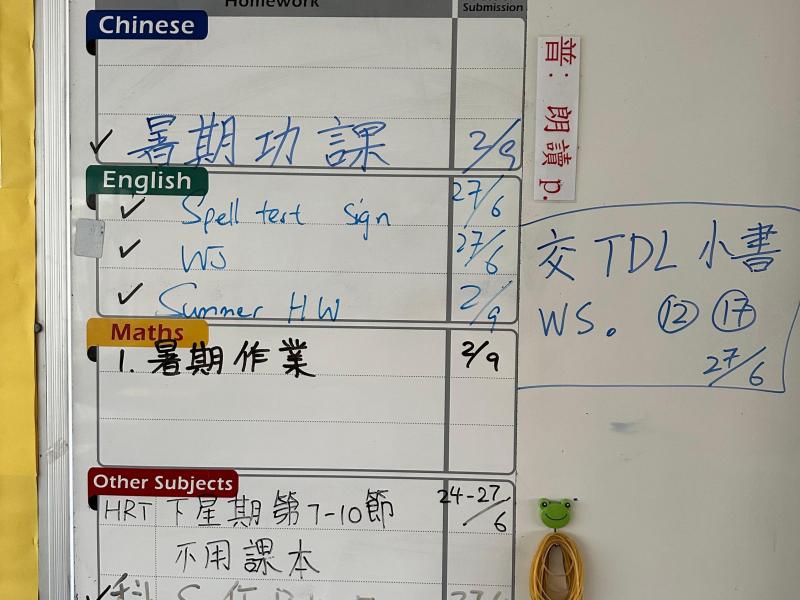 Homework
Submission
Chinese
✓ 暑期功課 2/9
English
✓ Spell text sign 27/6
✓ WS 27/6
✓ Summer HW 2/9
Maths
1. 暑期作業 2/9
Other Subjects
HRT 下星期第7-10節 24-27/6
不用課本
普：朗讀p.
交 TDL 小書
WS。 ⑫ ⑰
27/6